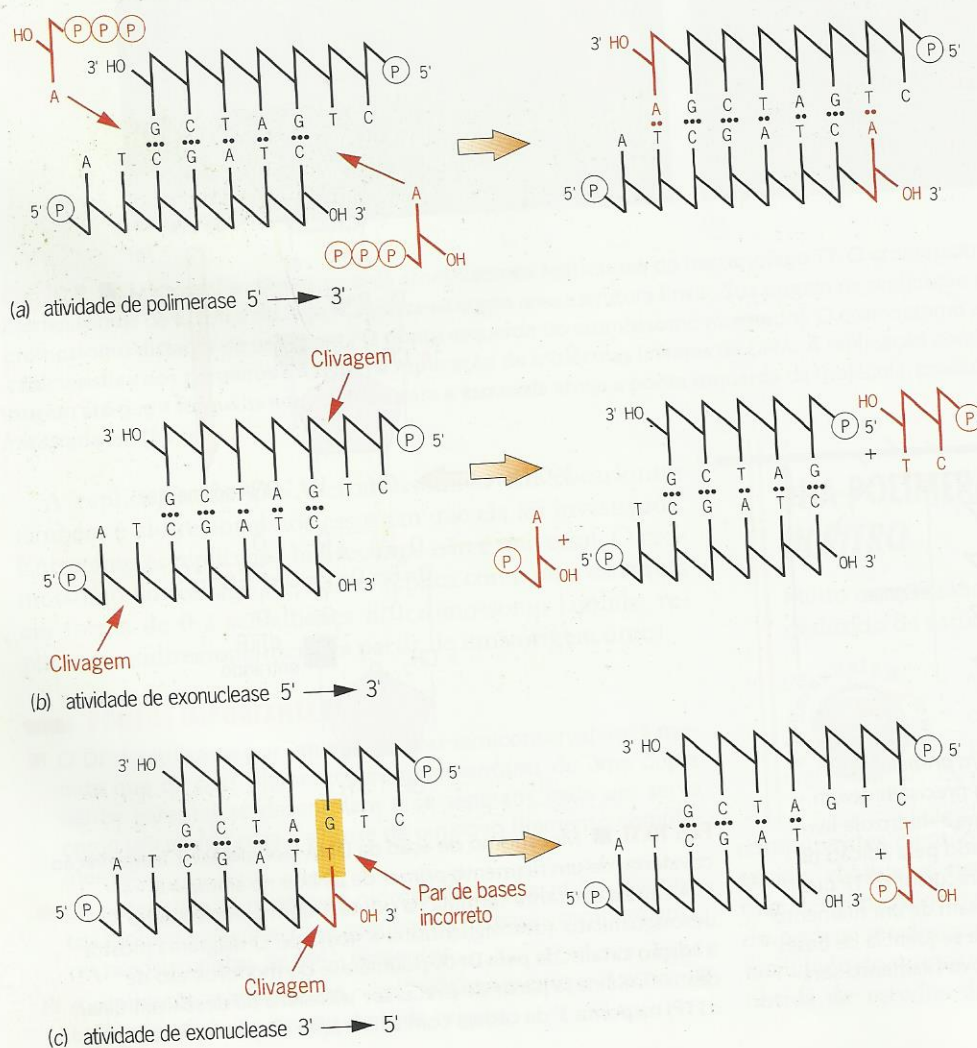 HO P P P
A
3' HO P 5'
G C T A G T C
A T C G A T C
5' P OH 3'
A
P P P OH
HO
3' P 5'
A G C T A G T C
A T C G A T C A
5' P OH 3'
(a) atividade de polimerase 5' → 3'
Clivagem
3' HO P 5'
G C T A G T C
A T C G A T C
5' P OH 3'
Clivagem
3' HO P 5' + HO P
G C T A G T C
T C G A T C
A
P + OH
5' P OH 3'
(b) atividade de exonuclease 5' → 3'
3' HO P 5'
G C T A G T C
A T C G A T T
5' P OH 3'
Par de bases
incorreto
Clivagem
3' HO P 5'
G C T A G T C
A T C G A T
5' P OH 3' + T P OH
(c) atividade de exonuclease 3' → 5'